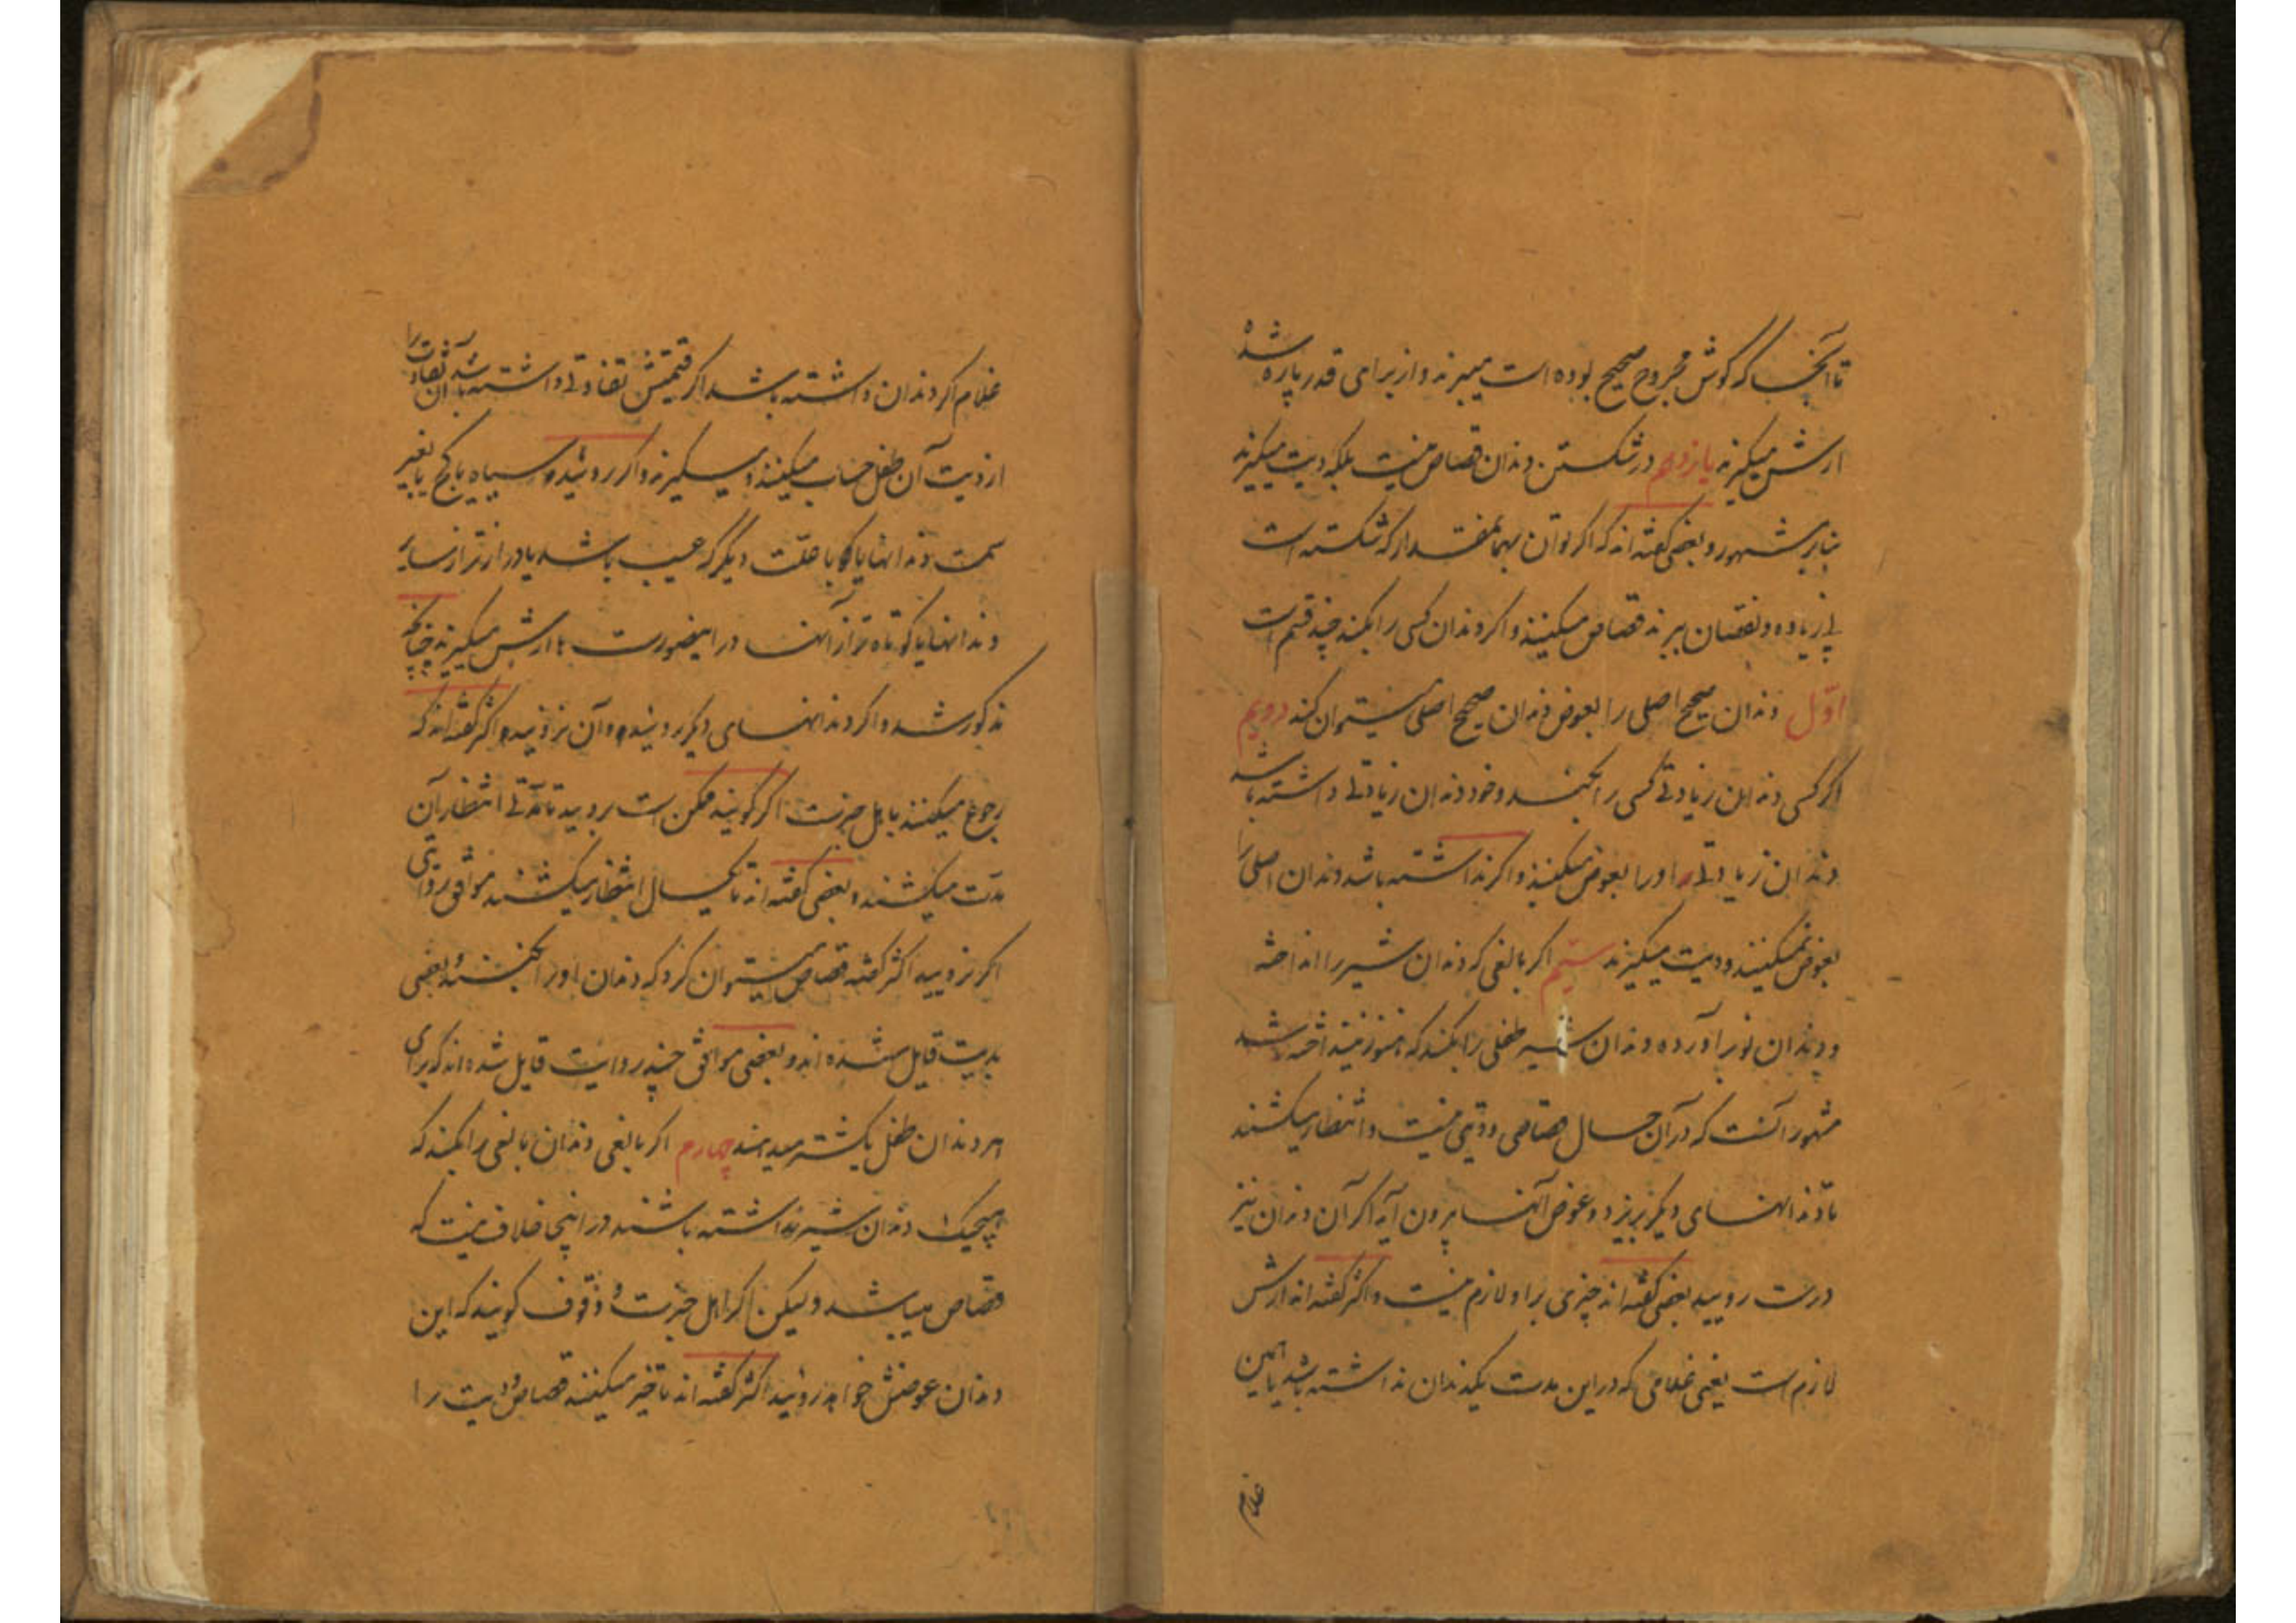 تا آنجا که گوش مجروح صحیح بوده است میبرند و از برای قدر پاره شده
ارش میگیرند یازدهم در شکستن دندان قصاص نیست بلکه دیت میگیرند
بنابر مشهور و بعضی گفته اند که اگر توان بهمانمقدار که شکسته است
بی زیاده و نقصان ببرند قصاص میکنند و اگر دندان کسی را بکند چند قسم است
اوّل دندان صحیح اصلی را بعوض دندان صحیح اصلی میتوان کند دویم
اگر کسی دندان زیادتی کسی را بکند و خود دندان زیادتی داشته باشد
دندان زیادتی او را بعوض میکنند و اگر نداشته باشد دندان اصلی را
بعوض نمیکنند و دیت میگیرند سیّم اگر بالغی که دندان شیر را انداخته
و دندان نو برآورده دندان شیر طفلی را بکند که هنوز نینداخته باشد
مشهور آنست که در آن حال قصاصی و دیتی نیست و انتظار میکشند
تا دندانهای دیگر بریزد و عوض آنها بیرون آید اگر آن دندان نیز
درست روید بعضی گفته اند چیزی بر او لازم نیست و اکثر گفته اند ارش
لازم است یعنی غلامی که در این مدت یکدندان نداشته باشد با همین
غلام
غلام اگر دندان داشته باشد اگر قیمتش تفاوتی داشته باشد آن تفاوت را
از دیت آن طفل حساب میکنند و میگیرند و اگر روئیده و سیاه یا کج یا بغیر
سمت دندانها یا با علّت دیگر که عیب باشد یا درازتر از سایر
دندانها یا کوتاه تر از آنها در اینصورت ها ارش میگیرند چنانچه
مذکور شد و اگر دندانهای دیگر روئیده و آن نروئیده اکثر گفته اند که
رجوع میکنند باهل خبرت اگر گویند ممکن است بروید تا مدّتی انتظار آن
مدّت میکشند و بعضی گفته اند تا یکسال انتظار میکشند موافق روایتی
اگر نروئید اکثر گفته قصاص میتوان کرد که دندان او را بکنند و بعضی
بدیت قایل شده اند و بعضی موافق چند روایت قایل شده اند که برای
هر دندان طفل یکشتر میدهند چهارم اگر بالغی دندان بالغی را بکند که
هیچیک دندان شیر نداشته باشند در اینجا خلاف نیست که
قصاص میباشد و لیکن اگر اهل خبرت و وقوف گویند که این
دندان عوضش خواهد روئید اکثر گفته اند تاخیر میکنند قصاص و دیت را